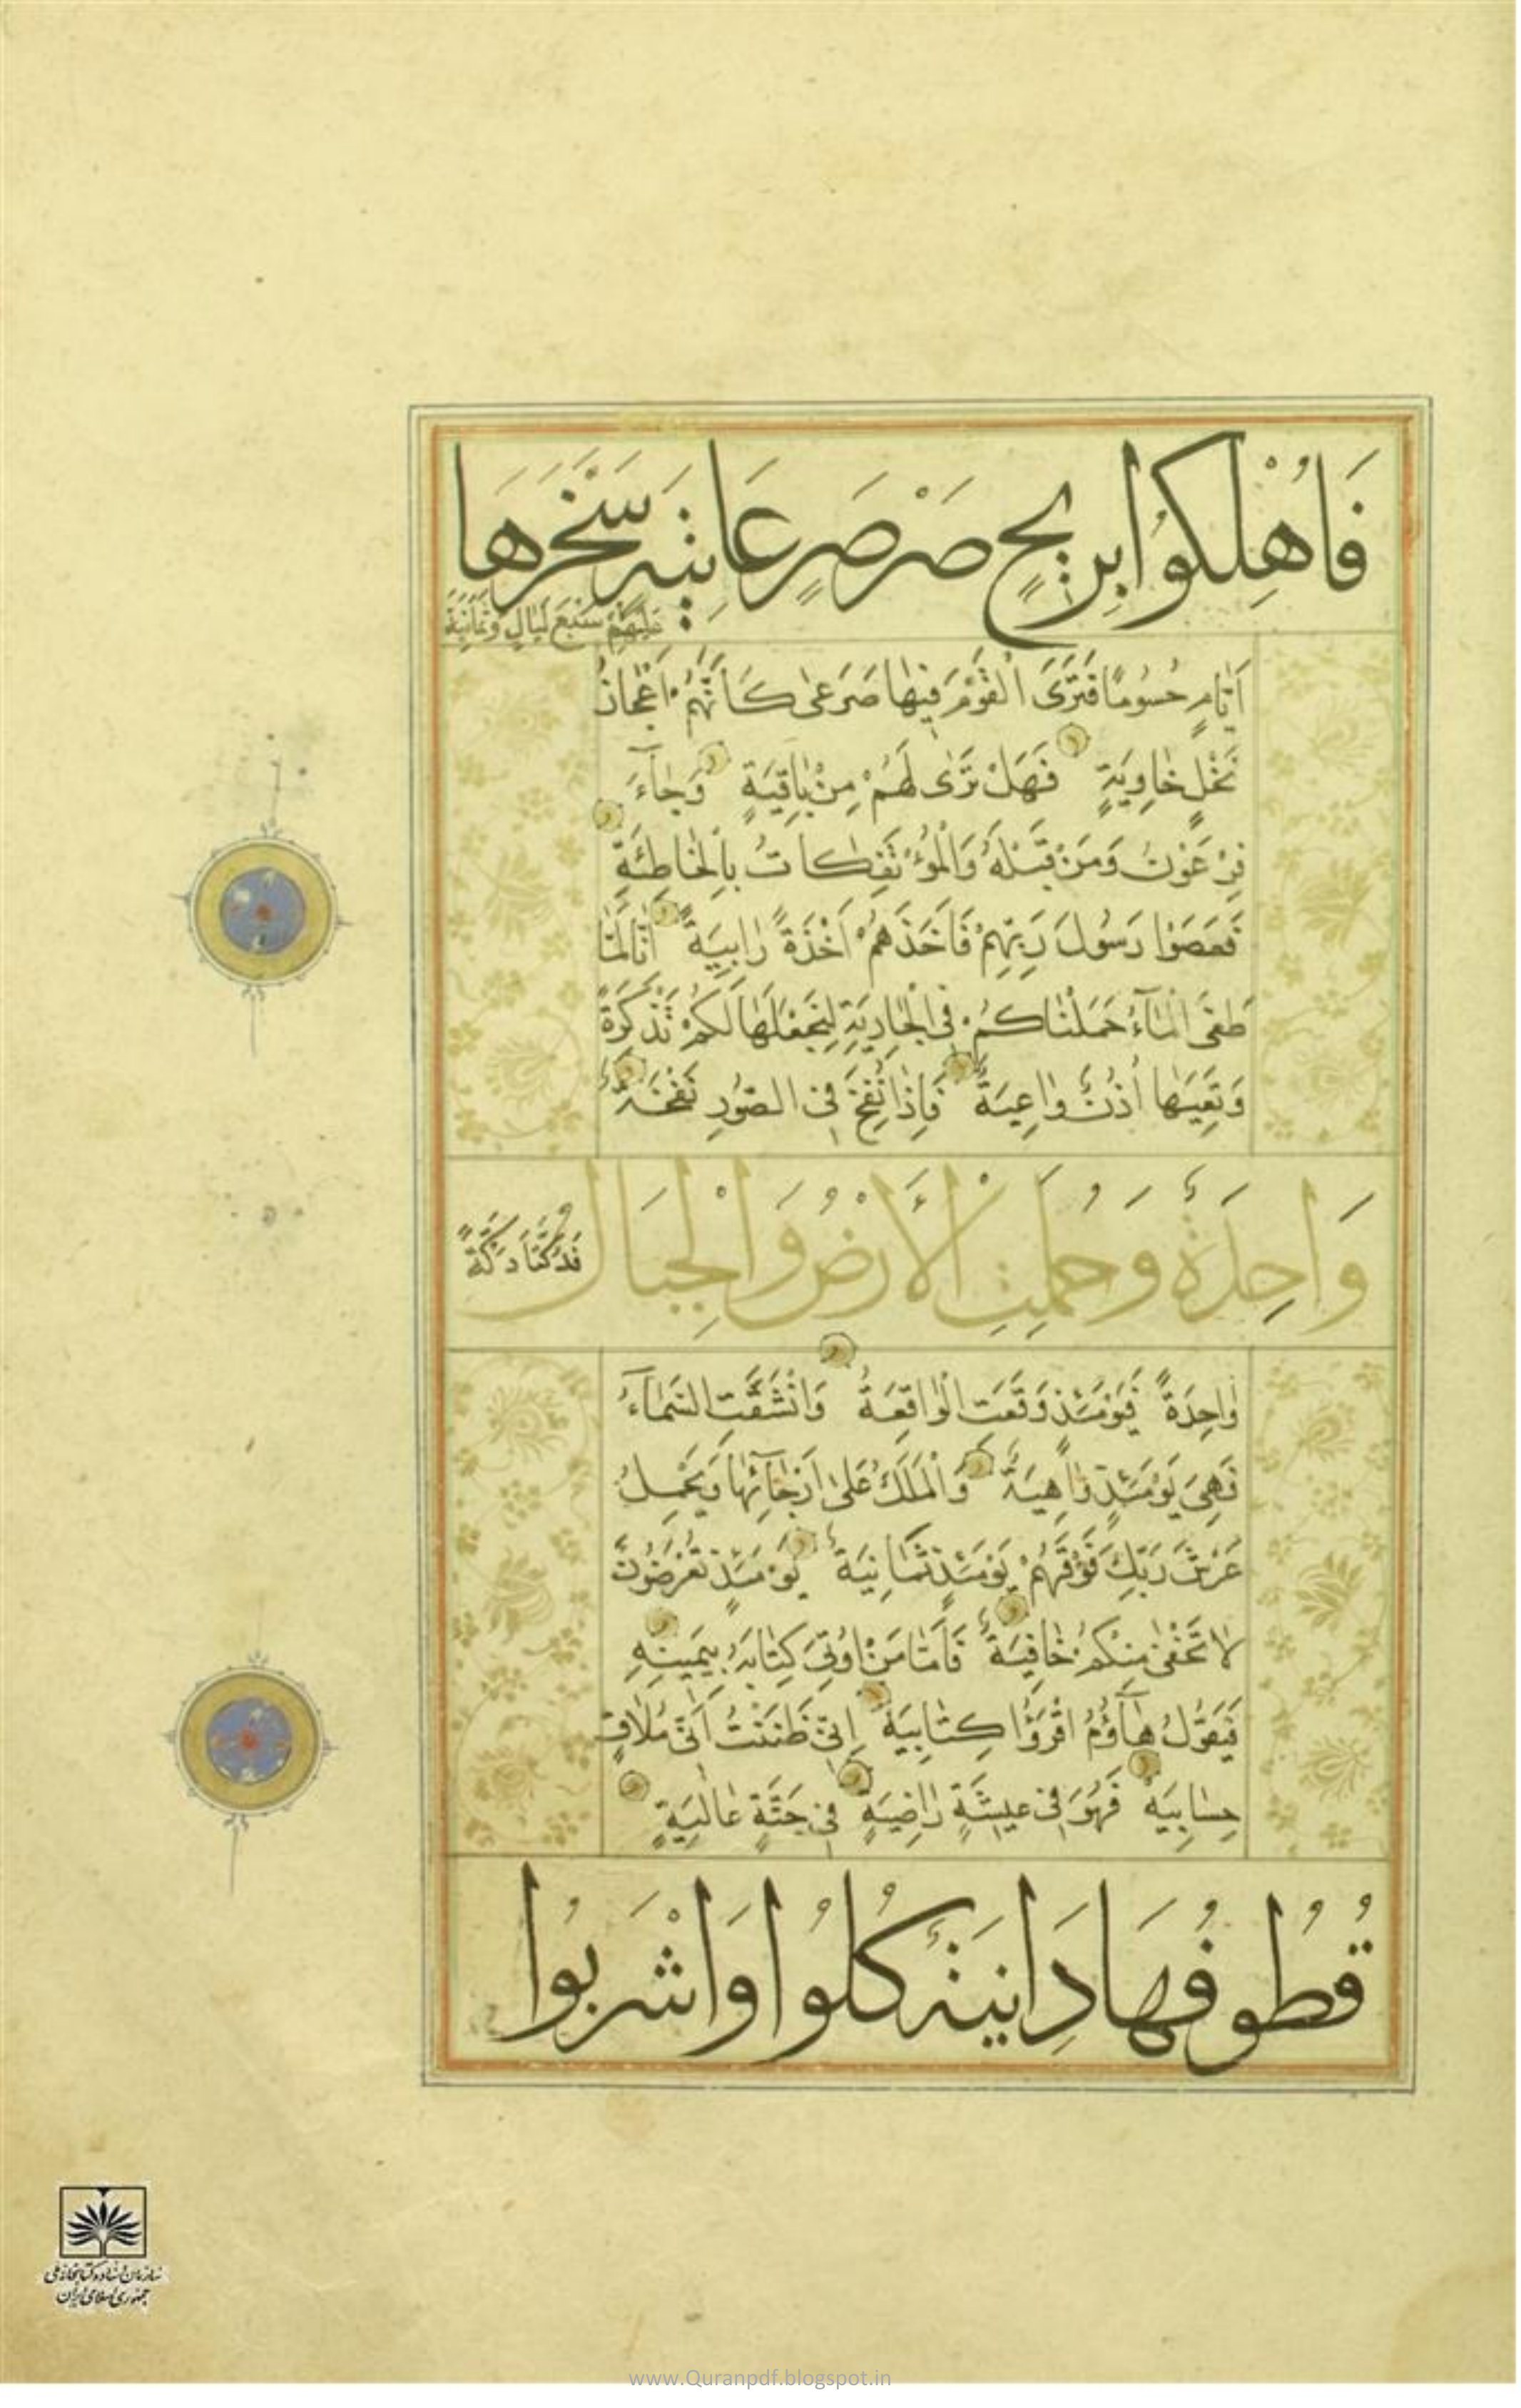 فَاُهْلِكُوا بِرِيحٍ صَرْصَرٍ عَاتِيَةٍ سَخَّرَهَا
عَلَيْهِمْ سَبْعَ لَيَالٍ وَثَمَانِيَةَ
اَيَّامٍ حُسُومًا فَتَرَى الْقَوْمَ فِيهَا صَرْعٰى كَاَنَّهُمْ اَعْجَازُ
نَخْلٍ خَاوِيَةٍ فَهَلْ تَرٰى لَهُمْ مِنْ بَاقِيَةٍ وَجَآءَ
فِرْعَوْنُ وَمَنْ قَبْلَهُ وَالْمُؤْتَفِكَاتُ بِالْخَاطِئَةِ
فَعَصَوْا رَسُولَ رَبِّهِمْ فَاَخَذَهُمْ اَخْذَةً رَابِيَةً اِنَّا لَمَّا
طَغَى الْمَآءُ حَمَلْنَاكُمْ فِى الْجَارِيَةِ لِنَجْعَلَهَا لَكُمْ تَذْكِرَةً
وَتَعِيَهَا اُذُنٌ وَاعِيَةٌ فَاِذَا نُفِخَ فِى الصُّورِ نَفْخَةٌ
وَاحِدَةٌ وَحُمِلَتِ الْأَرْضُ وَالْجِبَالُ
فَدُكَّتَا دَكَّةً
وَاحِدَةً فَيَوْمَئِذٍ وَقَعَتِ الْوَاقِعَةُ وَانْشَقَّتِ السَّمَآءُ
فَهِىَ يَوْمَئِذٍ وَاهِيَةٌ وَالْمَلَكُ عَلٰى اَرْجَآئِهَا وَيَحْمِلُ
عَرْشَ رَبِّكَ فَوْقَهُمْ يَوْمَئِذٍ ثَمَانِيَةٌ يَوْمَئِذٍ تُعْرَضُونَ
لَا تَخْفٰى مِنْكُمْ خَافِيَةٌ فَاَمَّا مَنْ اُوتِىَ كِتَابَهُ بِيَمِينِهِ
فَيَقُولُ هَآؤُمُ اقْرَؤُا كِتَابِيَهْ اِنِّى ظَنَنْتُ اَنِّى مُلَاقٍ
حِسَابِيَهْ فَهُوَ فِى عِيشَةٍ رَاضِيَةٍ فِى جَنَّةٍ عَالِيَةٍ
قُطُوفُهَا دَانِيَةٌ كُلُوا وَاشْرَبُوا
سازمان اسناد و کتابخانه ملی
جمهوری اسلامی ایران
www.Quranpdf.blogspot.in